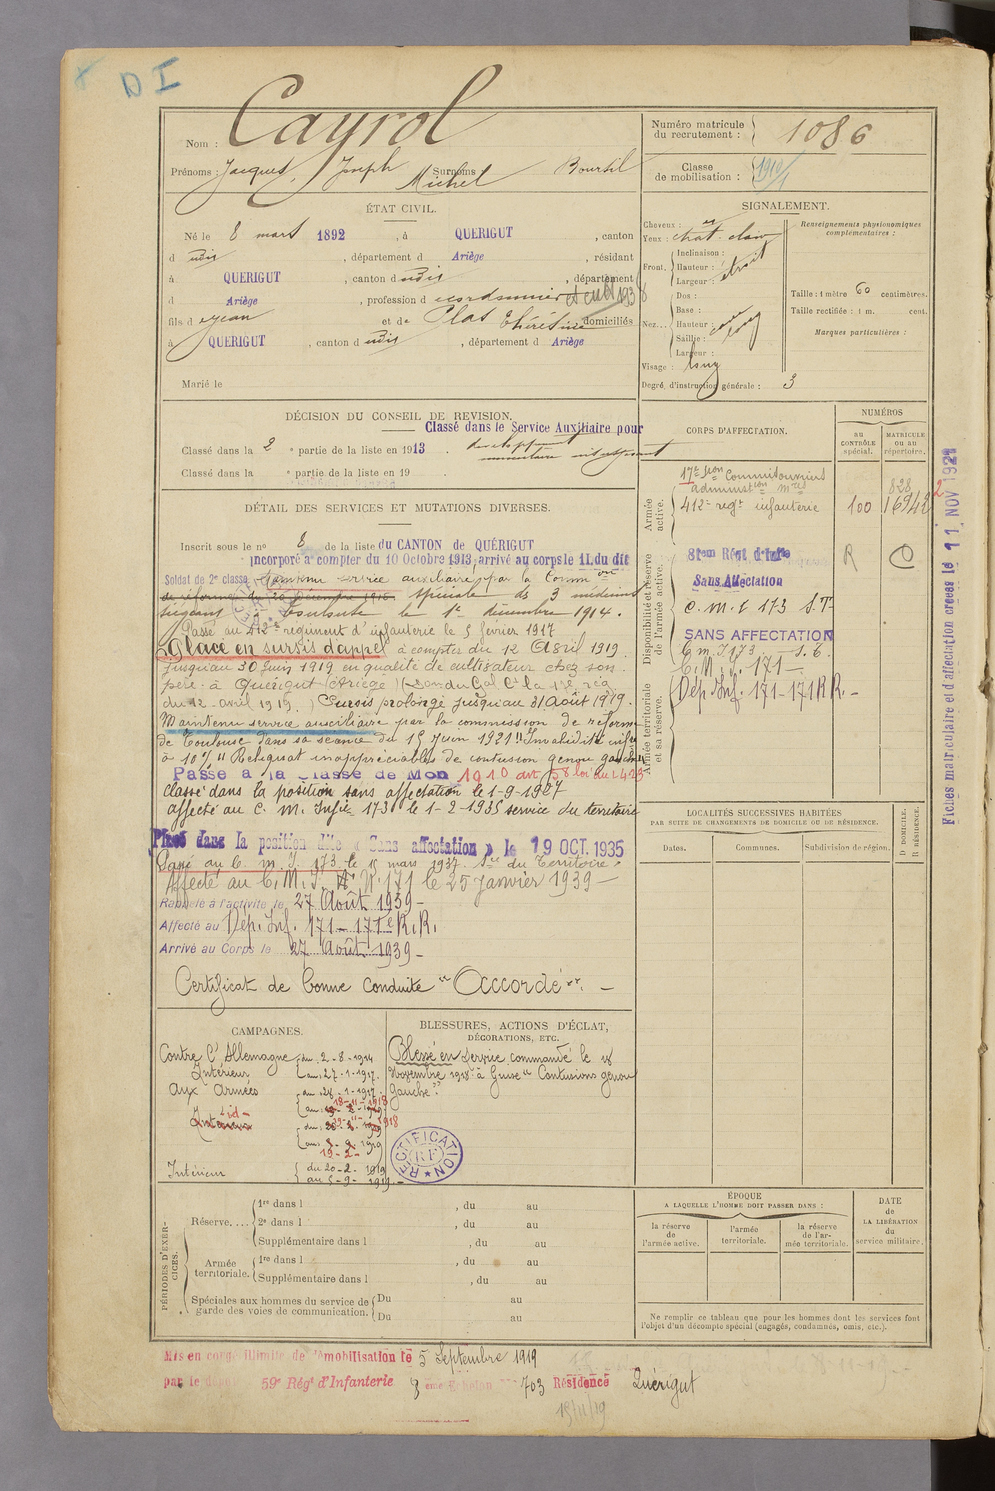 D I
Nom : Cayrol
Prénoms : Jacques, Joseph Michel Surnoms Bourtil
Numéro matricule du recrutement : 1086
Classe de mobilisation : 1910/1
ÉTAT CIVIL.
Né le 8 mars 1892, à QUERIGUT, canton
d udis, département d Ariège, résidant
à QUERIGUT, canton d udis, département
d Ariège, profession d cordonnier et cult 1938
fils d Jean et de Plat Thérésine domiciliés
à QUERIGUT, canton d udis, département d Ariège
Marié le
SIGNALEMENT.
Cheveux :
Yeux : chat. clair
Front. Inclinaison :
Hauteur :
Largeur : étroit
Nez... Dos :
Base :
Hauteur :
Saillie :
Largeur :
Visage : long
Degré, d'instruction générale : 3
Renseignements physionomiques complémentaires :
Taille : 1 mètre 60 centimètres.
Taille rectifiée : 1 m. cent.
Marques particulières :
DÉCISION DU CONSEIL DE REVISION.
Classé dans le Service Auxiliaire pour
Classé dans la 2 e partie de la liste en 1913. développement
musculaire insuffisant
Classé dans la e partie de la liste en 19
DÉTAIL DES SERVICES ET MUTATIONS DIVERSES.
Inscrit sous le n° 8 de la liste du CANTON de QUÉRIGUT
Incorporé à compter du 10 Octobre 1913, arrivé au corps le 11 du dit
Soldat de 2e classe, Maintenu service auxiliaire par la Comm on
de réforme du 20 Décembre 1915 spéciale des 3 médecins
siégeant à Toulouse le 1er décembre 1914.
Passé au 412e régiment d'infanterie le 5 février 1917
Placé en sursis d'appel à compter du 12 Avril 1919
jusqu'au 30 Juin 1919 en qualité de cultivateur chez son
père à Quérigut (Ariège)
du 12 avril 1919.) Sursis prolongé jusqu'au 31 Août 1919.
Maintenu service auxiliaire par la commission de réforme
de Toulouse dans sa séance du 15 Juin 1921 "Invalidité infre
à 10% " Reliquat inappréciables de contusion genou gauche
Passé à la classe de Mob 1910 art 58 loi du 1.4.23
Classé dans la position sans affectation le 1-9-1927
affecté au C. M. Infie 173 le 1-2-1935 service du territoire
Placé dans la position dite « Sans affectation » le 19 OCT. 1935
Passé au C. M. I. 173 le 15 mars 1937. Sce du Territoire.
Affecté au C. M. I. N° 171 le 25 Janvier 1939 -
Rappelé à l'activité le 27 Août 1939 -
Affecté au Dép. Inf. 171 - 171e R.R.
Arrivé au Corps le 27 Août 1939 -
Certificat de bonne conduite "Accordé". -
CORPS D'AFFECTATION.
NUMÉROS
AU CONTRÔLE spécial.
MATRICULE OU AU répertoire.
Armée active.
17e Son Commis ouvriers
administon mres 828
412e régt infanterie 100 16942
Disponibilité et réserve de l'armée active.
81eme Régt d'Infie R
Sans Affectation
C. M. I 173 S.T.
SANS AFFECTATION
C. m. I 173 - S.T.
C. M. I. 171 -
Armée territoriale et sa réserve.
Dép. Inf. 171 - 171 R.R. -
Fiches matriculaire et d'affectation créées le 11 NOV 1921
LOCALITÉS SUCCESSIVES HABITÉES
PAR SUITE DE CHANGEMENTS DE DOMICILE OU DE RÉSIDENCE.
Dates.
Communes.
Subdivision de région.
D DOMICILE. R RÉSIDENCE.
CAMPAGNES.
Contre l'Allemagne
Intérieur du 2-8-1914
au 27-1-1917.
Aux armées du 28-1-1917.
Intérieur du 20-2-1919
au 5-9-1919. -
BLESSURES, ACTIONS D'ÉCLAT,
DÉCORATIONS, ETC.
Blessé en service commandé le 18
Novembre 1918 à Guise "Contusions genou
gauche."
RECTIFICATION RF
PÉRIODES D'EXERCICES.
Réserve.... 1re dans l , du au
2e dans l , du au
Supplémentaire dans l , du au
Armée territoriale. 1re dans l , du au
Supplémentaire dans l , du au
Spéciales aux hommes du service de garde des voies de communication. Du au
Du au
ÉPOQUE
A LAQUELLE L'HOMME DOIT PASSER DANS :
la réserve de l'armée active.
l'armée territoriale.
la réserve de l'armée territoriale.
DATE de LA LIBÉRATION du service militaire.
Ne remplir ce tableau que pour les hommes dont les services font
l'objet d'un décompte spécial (engagés, condamnés, omis, etc.).
Mis en congé illimité de démobilisation le 5 Septembre 1919
par le dépôt 59e Régt d'Infanterie 8 ème Echelon n° 703 Résidence Quérigut
15/11/19